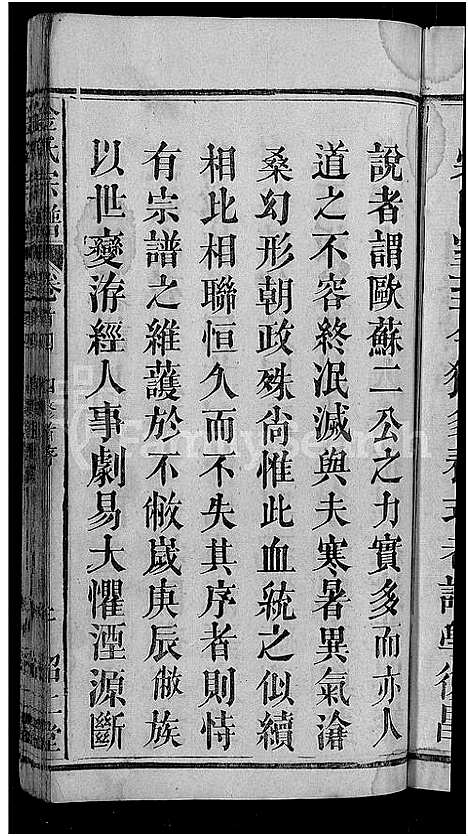 說者謂歐蘇二公之力實多而亦人
道之不容終泯滅與夫寒暑異氣滄
桑幻形朝政殊尙惟此血統之似續
相比相聯恒久而不失其序者則恃
有宗譜之維護於不敝歲庚辰敝族
以世變洊經人事劇易大懼湮源斷
金氏宗譜 卷首
FamilySearch